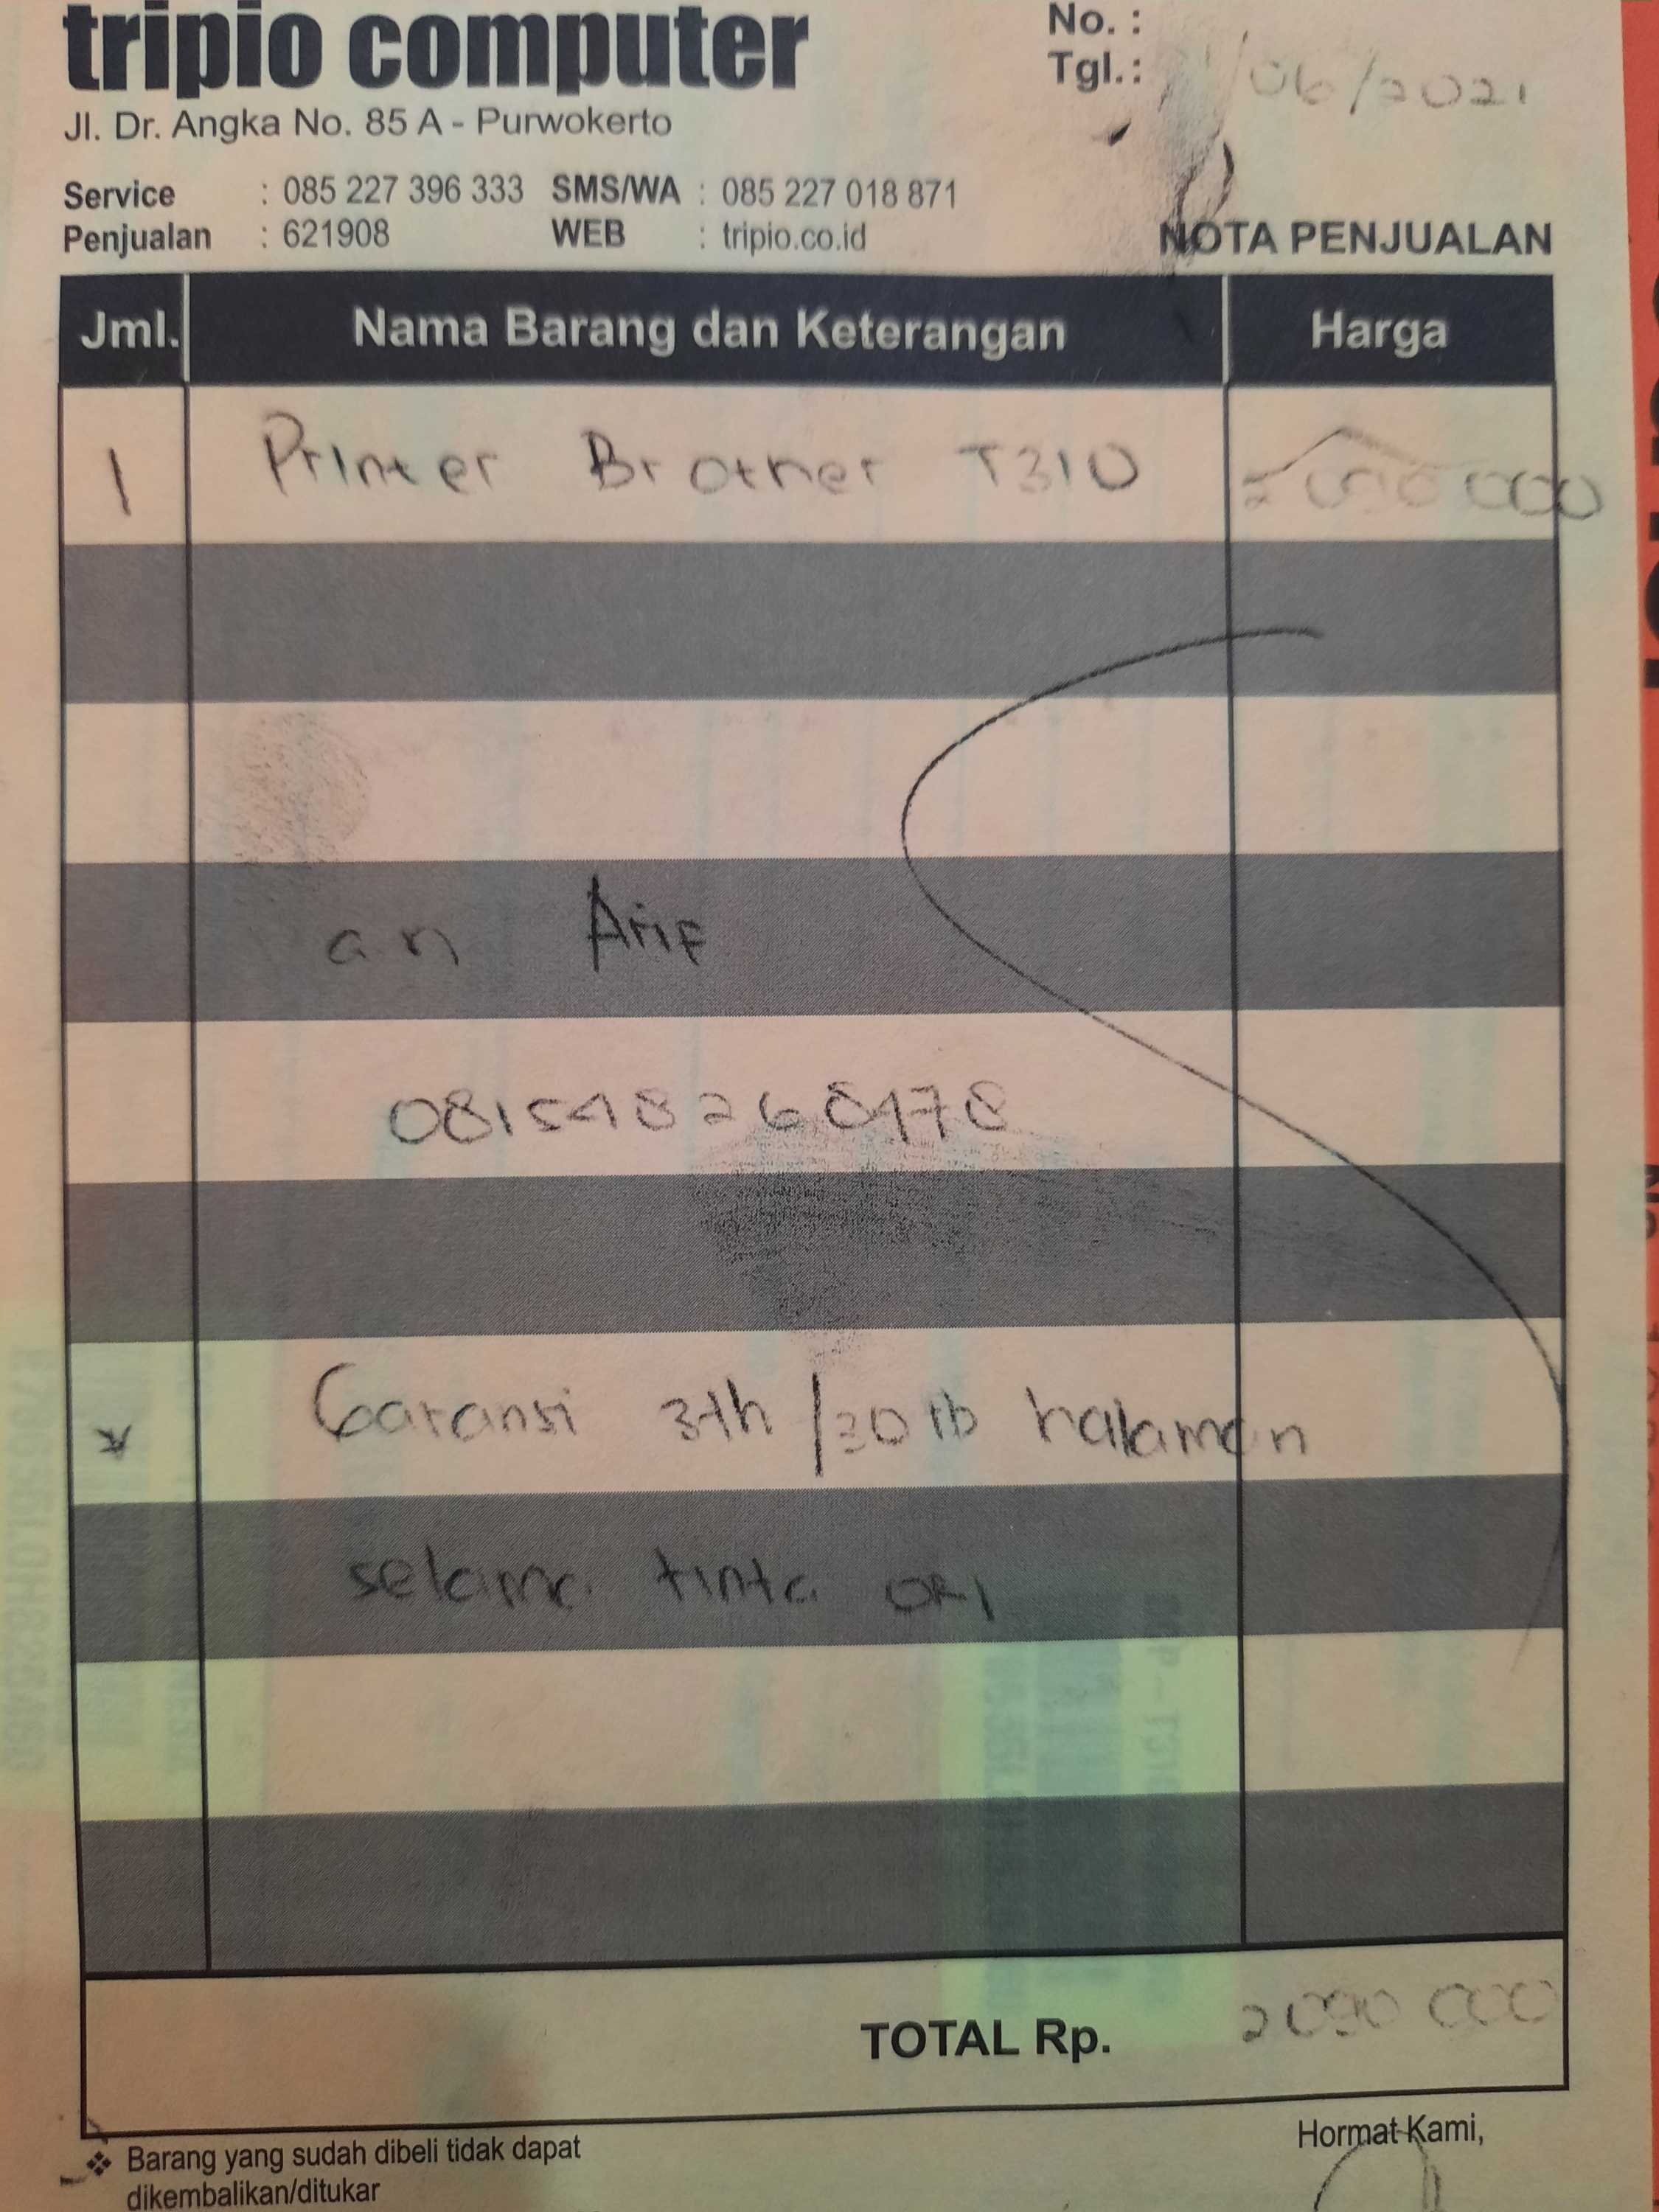 tripio computer
No. :
Tgl.: /06/2021
Jl. Dr. Angka No. 85 A - Purwokerto
Service : 085 227 396 333 SMS/WA : 085 227 018 871
Penjualan : 621908 WEB : tripio.co.id
NOTA PENJUALAN
Jml. Nama Barang dan Keterangan Harga
1 Printer Brother T310
an Arif
* Garansi 3th /30 rb halaman
selama tinta ORI
TOTAL Rp. 2090 000
Hormat Kami,
❖ Barang yang sudah dibeli tidak dapat
dikembalikan/ditukar